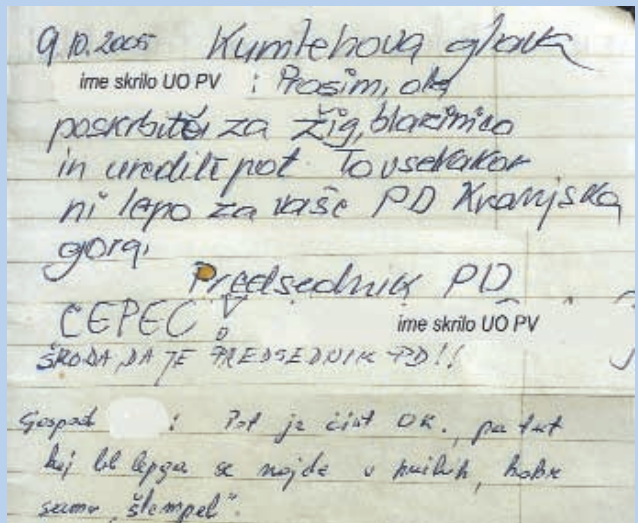 9.10.2005 Kumlehova glava
ime skrilo UO PV : Prosim, da
poskrbite za žig, blazinico
in uredite pot. To vsekakor
ni lepo za vaše PD Kranjska
gora,
Predsednik PD
CEPEC!
ime skrilo UO PV
ŠKODA, DA JE PREDSEDNIK PD!!
Gospod : Pot je čist OK., pa tut
kej bl lepga se najde u knjih, kokr
samo „štempel“.